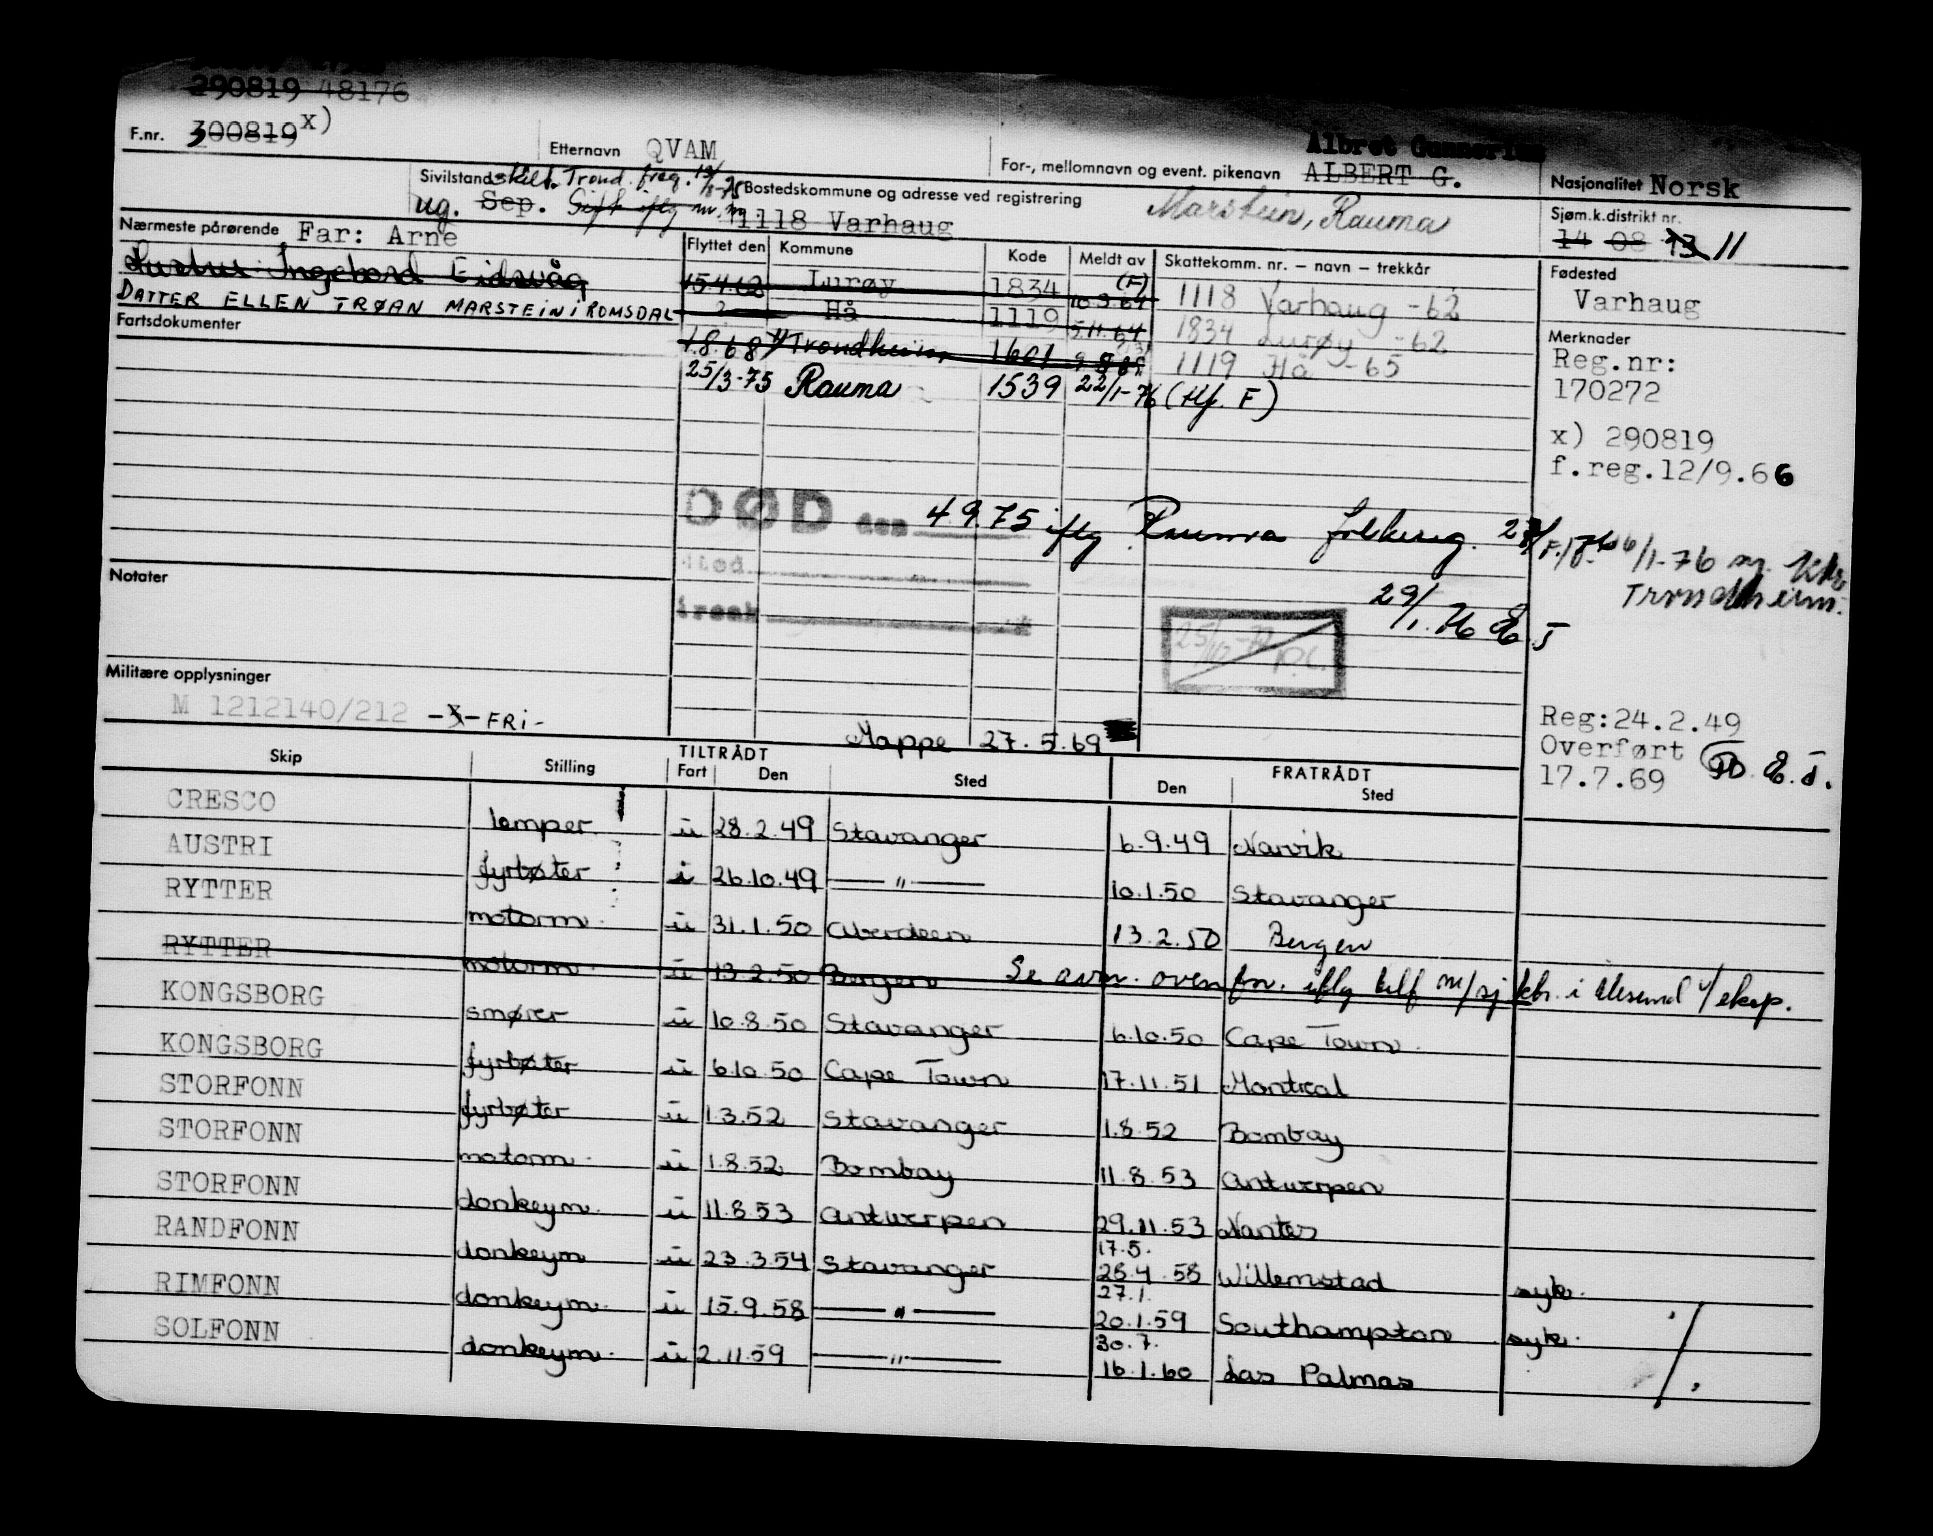 290819 48176
F.nr. 300819 x)
Etternavn QVAM
For-, mellomnavn og event. pikenavn ALBERT G.
Albret Gunnerius
Nasjonalitet Norsk
Sivilstand skilt. Trond. freg.
ug. Sep. Gift iflg m.m
Bostedskommune og adresse ved registrering
1118 Varhaug
Marstein, Rauma
Sjøm.k.distrikt nr.
14 08 13 11
Nærmeste pårørende Far: Arne
Søster: Ingebord Eidsvåg
DATTER ELLEN TRØAN MARSTEIN i ROMSDAL
Flyttet den Kommune Kode Meldt av Skattekomm. nr. – navn – trekkår
15.4.62 Lurøy 1834 (F) 10.9.64 1118 Varhaug -62
? Hå 1119 5.11.64 1834 Lurøy -62
1.8.68 Trondheim 1601 1119 Hå -65
25/3-75 Rauma 1539 22/1-76 (tlf. F)
Fødested
Varhaug
Merknader
Reg.nr:
170272
x) 290819
f.reg.12/9.66
Fartsdokumenter
DØD den 4.9.75 iflg Rauma folkereg.
6/1-76 Trondheim.
sted
29/1.76 E.J
Notater
Militære opplysninger
M 1212140/212 -X- FRI-
Mappe 27.5.69
Reg:24.2.49
Overført
17.7.69 E.J.
Skip Stilling TILTRÅDT Fart Den Sted FRATRÅDT Den Sted
CRESCO lemper u 28.2.49 Stavanger 6.9.49 Narvik
AUSTRI fyrbøter i 26.10.49 —"— 10.1.50 Stavanger
RYTTER motorm u 31.1.50 Aberdeen 13.2.50 Bergen
RYTTER motorm. u 13.2.50 Bergen Se avm. ovenfor. iflg telf m/sj.ktr. i Ålesund v/eksp.
KONGSBORG smører u 10.8.50 Stavanger 6.10.50 Cape Town.
KONGSBORG fyrbøter u 6.10.50 Cape Town 17.11.51 Montreal
STORFONN fyrbøter u 1.3.52 Stavanger 1.8.52 Bombay
STORFONN motorm. u 1.8.52 Bombay 11.8.53 Antwerpen
STORFONN donkeym. u 11.8.53 Antwerpen 29.11.53 Nantes
RANDFONN donkeym u 23.3.54 Stavanger 17.5. 28.4.58 Willemstad syk.
RIMFONN donkeym. u 15.9.58 —"— 27.1. 20.1.59 Southampton syk.
SOLFONN donkeym. u 2.11.59 —"— 30.7. 16.1.60 Las Palmas